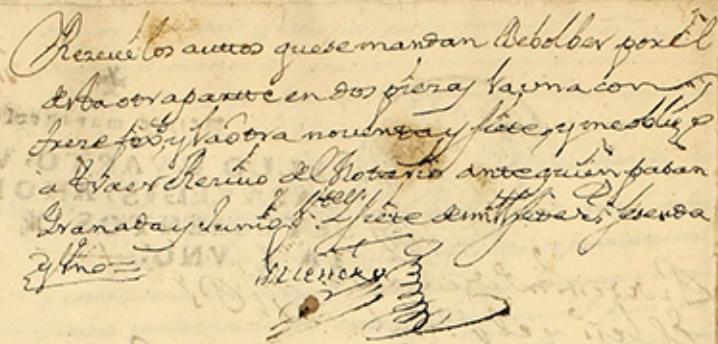 Rezeui los auttos que se mandan debolber por el
desta otra parte en dos piezas la una con
treze fox.s y la otra noventa y siete, y me obligo
a traer Reziuo del Notario ante quien pasan
Granada y Junio y siete de mill settez.s sesenda
y uno =